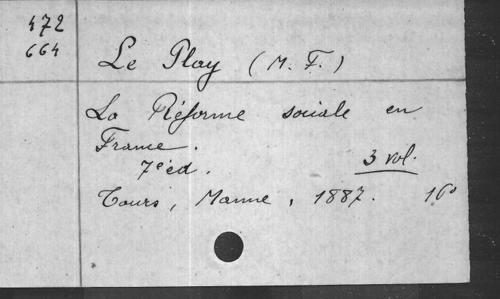 472
664
Le Play (M. F.)
La Réforme sociale en
France.
7e éd.
3 vol.
Tours, Mame, 1887. 16°